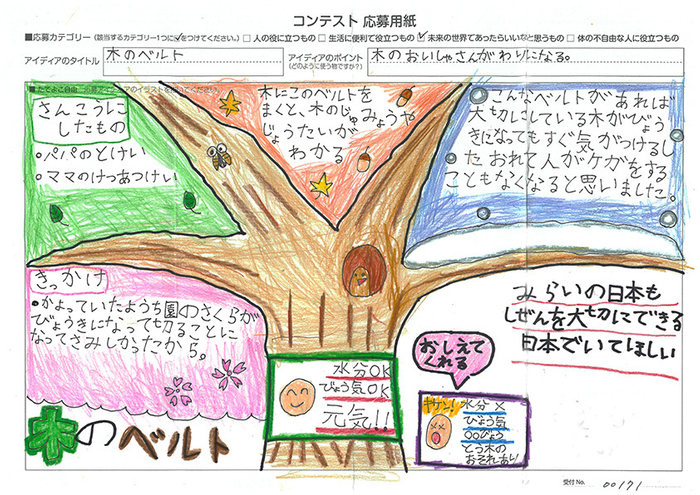 コンテスト 応募用紙
■応募カテゴリー（該当するカテゴリー1つに✓をつけてください。）□ 人の役に立つもの □ 生活に便利で役立つもの ☑ 未来の世界であったらいいなと思うもの □ 体の不自由な人に役立つもの
アイディアのタイトル
木のベルト
アイディアのポイント
(どのように使う物ですか？)
木のおいしゃさんがわりになる。
さんこうに
したもの
・パパのとけい
・ママのけつあつけい
木にこのベルトを
まくと、木のじゅみょうや
じょうたいが
わかる
こんなベルトがあれば
大切にしている木がびょう
きになってもすぐ気がつけるし
たおれて人がケガをする
こともなくなると思いました。
きっかけ
・かよっていたようち園のさくらが
びょうきになって切ることに
なってさみしかったから。
みらいの日本も
しぜんを大切にできる
日本でいてほしい
おしえて
くれる
水分OK
びょう気OK
元気!!
キケン!
水分×
びょう気
〇〇びょう
とう木の
おそれあり!
木のベルト
受付 No.
00171